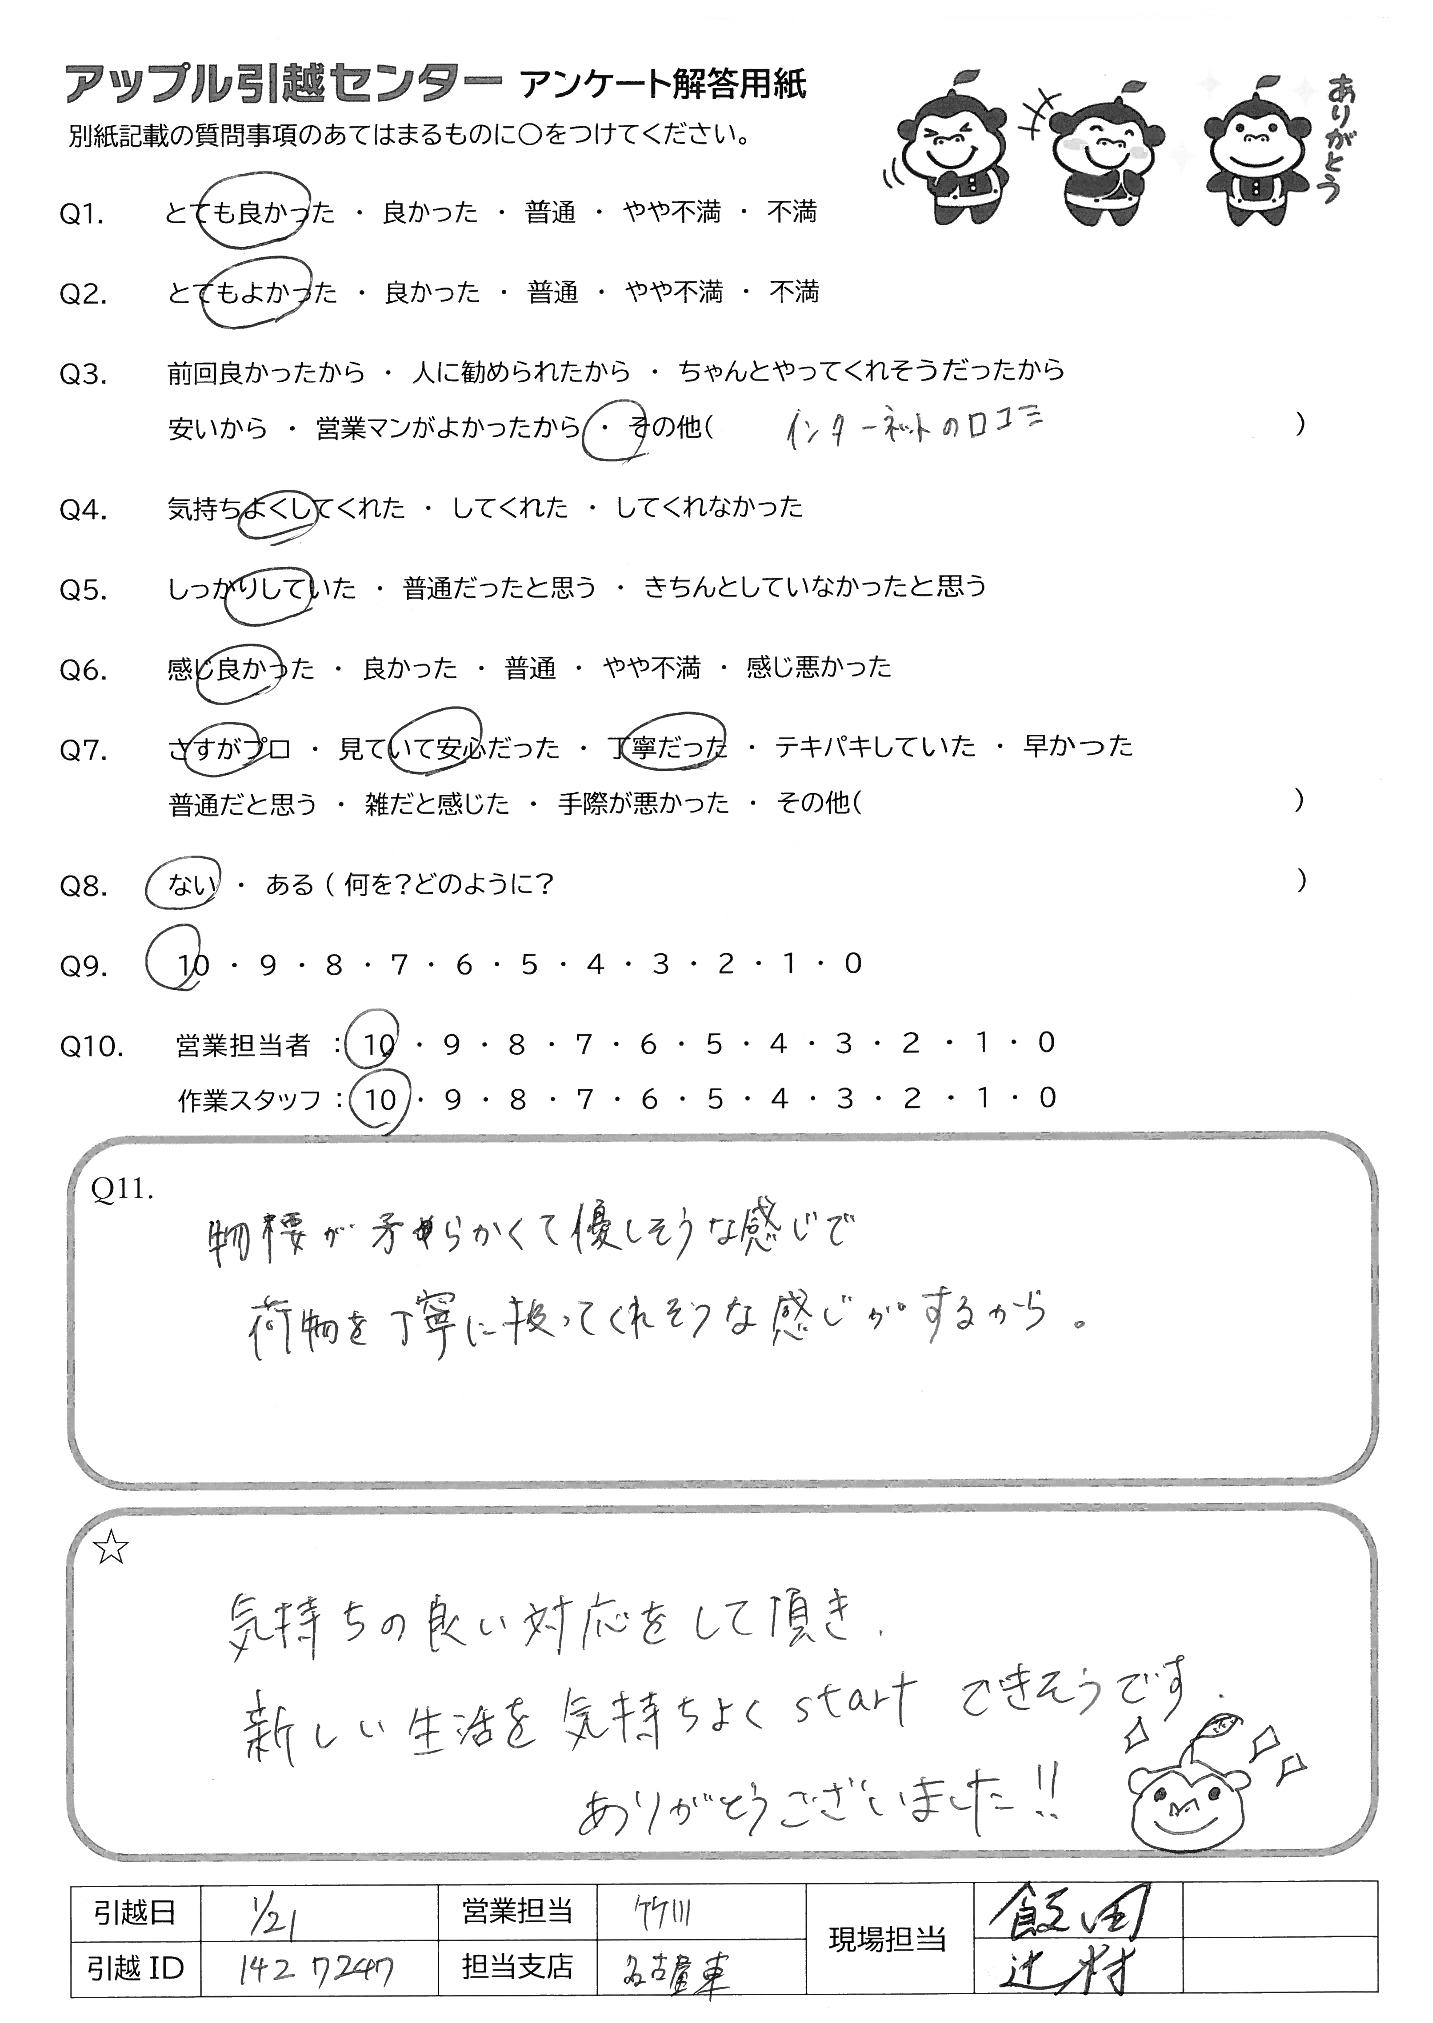 アップル引越センター アンケート解答用紙
別紙記載の質問事項のあてはまるものに○をつけてください。
ありがとう
Q1. とても良かった ・ 良かった ・ 普通 ・ やや不満 ・ 不満
Q2. とてもよかった ・ 良かった ・ 普通 ・ やや不満 ・ 不満
Q3. 前回良かったから ・ 人に勧められたから ・ ちゃんとやってくれそうだったから
安いから ・ 営業マンがよかったから ・ その他( インターネットの口コミ )
Q4. 気持ちよくしてくれた ・ してくれた ・ してくれなかった
Q5. しっかりしていた ・ 普通だったと思う ・ きちんとしていなかったと思う
Q6. 感じ良かった ・ 良かった ・ 普通 ・ やや不満 ・ 感じ悪かった
Q7. さすがプロ ・ 見ていて安心だった ・ 丁寧だった ・ テキパキしていた ・ 早かった
普通だと思う ・ 雑だと感じた ・ 手際が悪かった ・ その他( )
Q8. ない ・ ある ( 何を?どのように? )
Q9. 10 ・ 9 ・ 8 ・ 7 ・ 6 ・ 5 ・ 4 ・ 3 ・ 2 ・ 1 ・ 0
Q10. 営業担当者 : 10 ・ 9 ・ 8 ・ 7 ・ 6 ・ 5 ・ 4 ・ 3 ・ 2 ・ 1 ・ 0
作業スタッフ : 10 ・ 9 ・ 8 ・ 7 ・ 6 ・ 5 ・ 4 ・ 3 ・ 2 ・ 1 ・ 0
Q11.
物腰が柔らかくて優しそうな感じで
荷物を丁寧に扱ってくれそうな感じがするから。
☆
気持ちの良い対応をして頂き、
新しい生活を気持ちよく start できそうです.
ありがとうございました!!
引越日 1/21 営業担当 竹川 現場担当 飯田
引越 ID 142 7247 担当支店 名古屋東 辻村